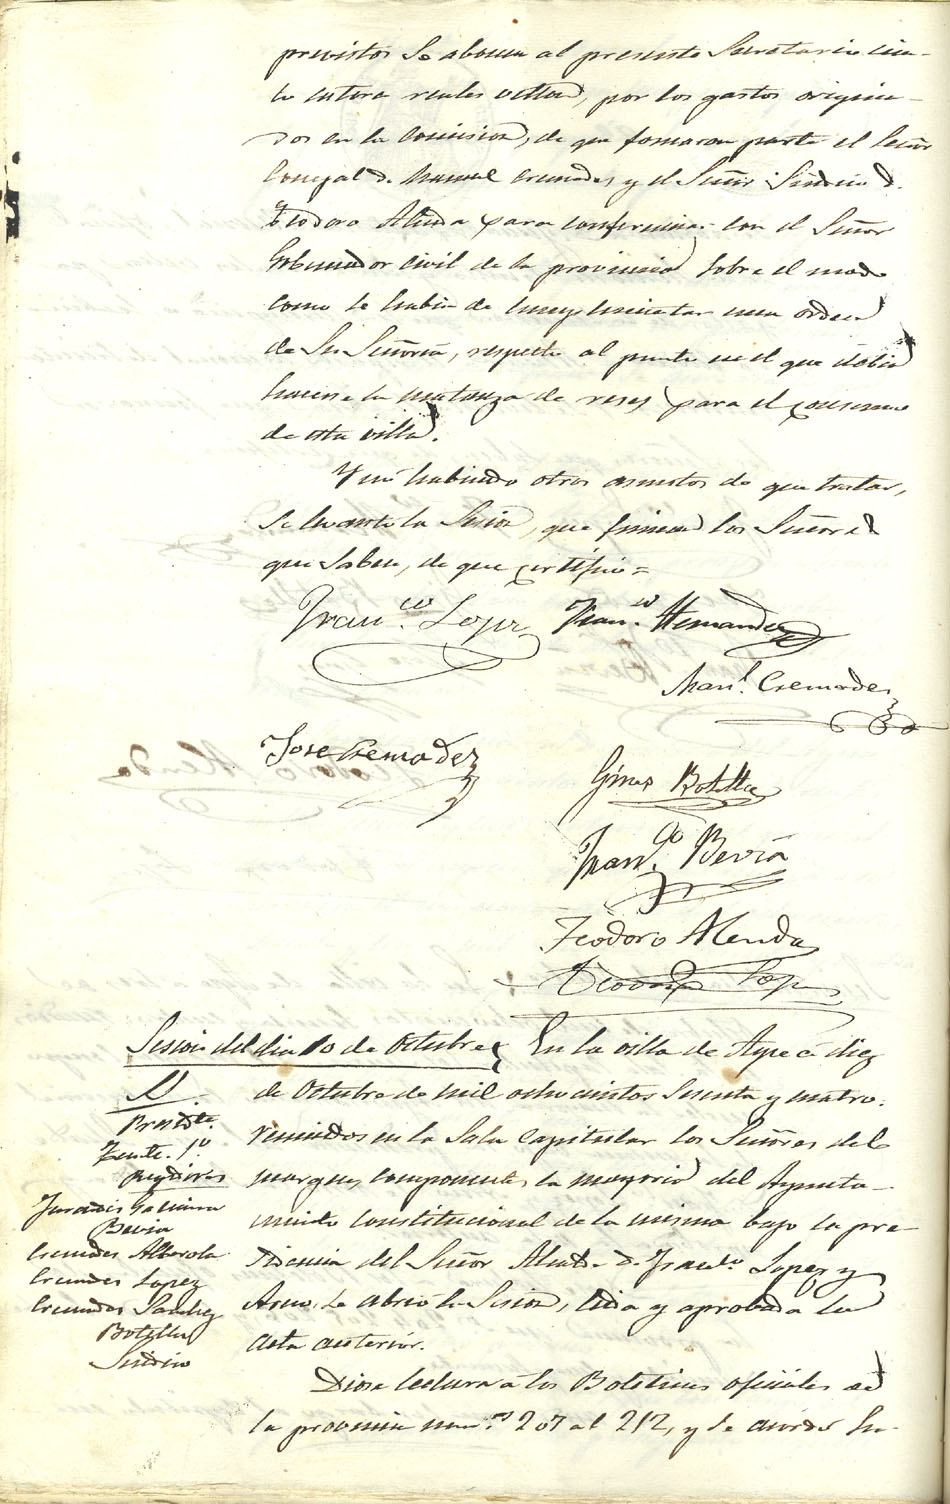 previstos se abonen al presente Secretario cien-
to reales vellon, por los gastos origina-
dos en la comision, de que formaron parte el Señor
Concejal d. Manuel Cremades y el Señor Sindico d.
Teodoro Alenda para conferenciar con el Señor
Gobernador civil de la provincia sobre el modo
como se habia de cumplimentar una orden
de Su Señoria, respecto al punto en el que debia
hacerse la matanza de reses para el consumo
de esta villa.
Y no habiendo otros asuntos de que tratar,
se levanto la Sesion, que firman los Señores
que saben, de que certifico =
Fran.co Lopez Fran.co Hernandez
Man.l Cremades
Jose Cremadez
Gines Botella
Fran.co Beviá
Teodoro Alenda
Teodoro Lopez
Sesion del dia 10 de Octubre
D.
Presid.te
Tente. 1.o
Regidores
Galiana
Bevia
Cremades Alberola
Cremades Lopez
Cremades Sanchez
Botella
Sindico
En la villa de Aspe á diez
de Octubre de mil ochocientos sesenta y cuatro:
reunidos en la Sala Capitular los Señores del
margen, componentes la mayoria del Ayunta-
miento Constitucional de la misma bajo la pre-
sidencia del Señor Alcalde D. Fran.co Lopez y
se abrio la Sesion, leida y aprobada la
acta anterior.
Diose lectura a los Boletines oficiales de
la provincia num.os 207 al 212, y se acordo su